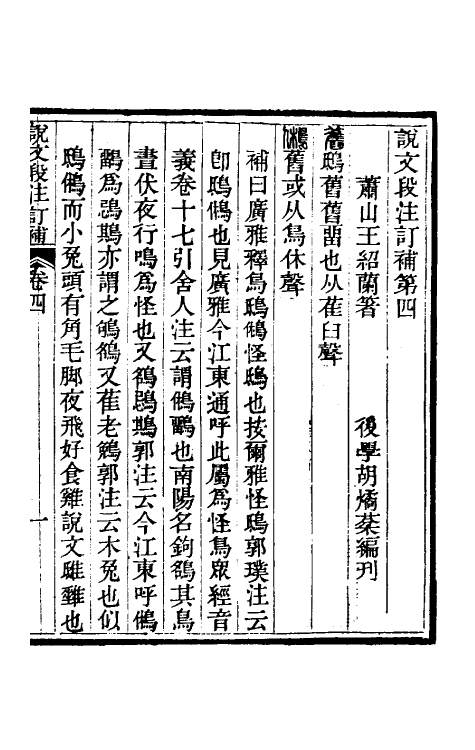 說文段注訂補第四
蕭山王紹蘭著　後學胡燏棻編刊
舊鴟舊舊畱也从萑臼聲
鵂舊或从鳥休聲
補曰廣雅釋鳥鴟鵂怪鴟也按爾雅怪鴟郭璞注云
卽鴟鵂也見廣雅今江東通呼此屬爲怪鳥眾經音
義卷十七引舍人注云謂鵂鶹也南陽名鉤鵅其鳥
晝伏夜行鳴爲怪也又鵅鶀鶀郭注云今江東呼鵂
鶹爲鶀鶀亦謂之鴝鵅又萑老鵵郭注云木兔也似
鴟鵂而小兔頭有角毛脚夜飛好食雞說文雎雖也
說文段注訂補　卷四　一